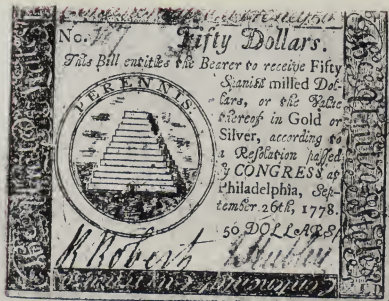 No.
Fifty Dollars.
This Bill entitles the Bearer to receive Fifty
Spanish milled Dol-
lars, or the Value
thereof in Gold or
Silver, according to
a Resolution passed
by CONGRESS at
Philadelphia, Sep-
tember 26th, 1778.
50 DOLLARS.
PERENNIS.
R Roberts